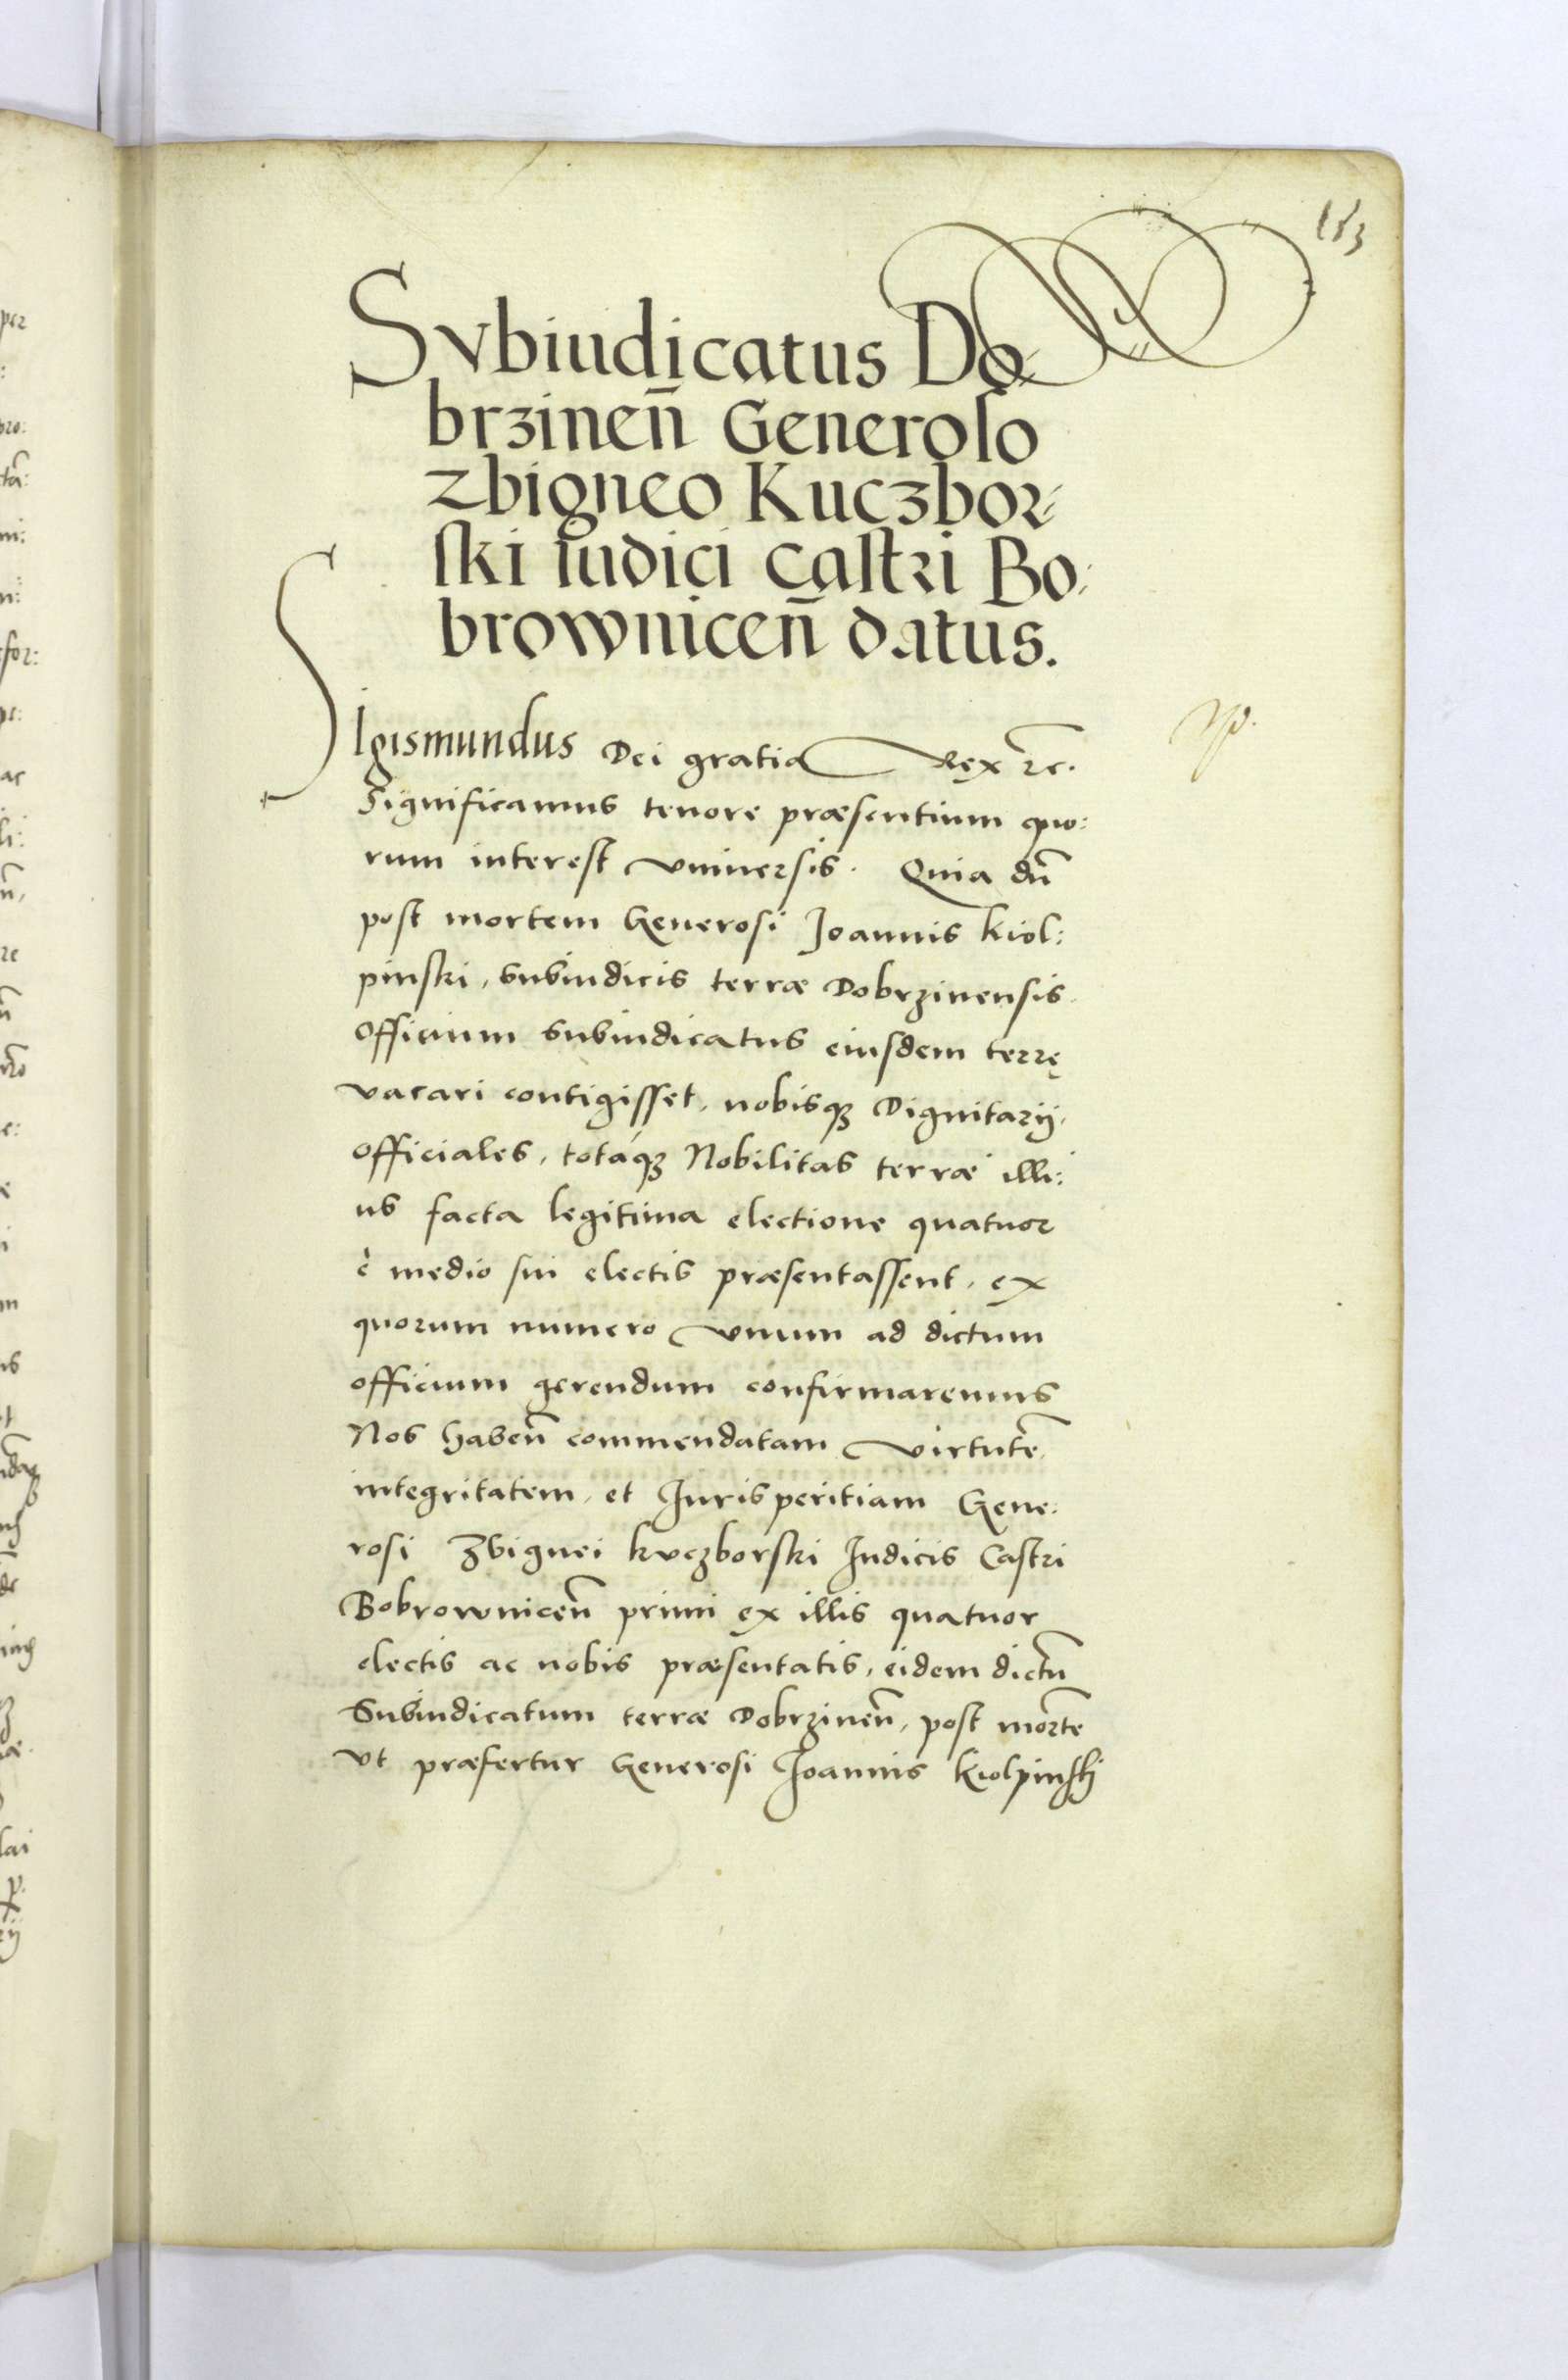 Svbiudicatus Do
brzineñ Generoso
Zbigneo Kuczbor
ski Iudici Castri Bo:
browniceñ datus.
Sigismundus Dei gratia Rex etc.
Significamus tenore præsentium quo:
rum interest vniuersis. Quia dũ
post mortem Generosi Ioannis Kiol:
pinski, Subiudicis terræ Dobrzinensis
Officium Subiudicatus eiusdem terrę
vacari contigisset, nobisq3 Dignitarij,
Officiales, totáq3 Nobilitas terræ illi:
us facta legitima electione quatuor
è medio sui electis præsentassent, ex
quorum numero vnum ad dictum
officium gerendum confirmaremus
Nos habeñ commendatam virtutẽ,
integritatem, et Iurisperitiam Gene:
rosi Zbignei Kuczborski Iudicis Castri
Bobrowniceñ primi ex illis quatuor
electis ac nobis præsentatis, eidem dictũ
Subiudicatum terræ Dobrzineñ, post mortẽ
vt præfertur Generosi Ioannis Kiolpinski